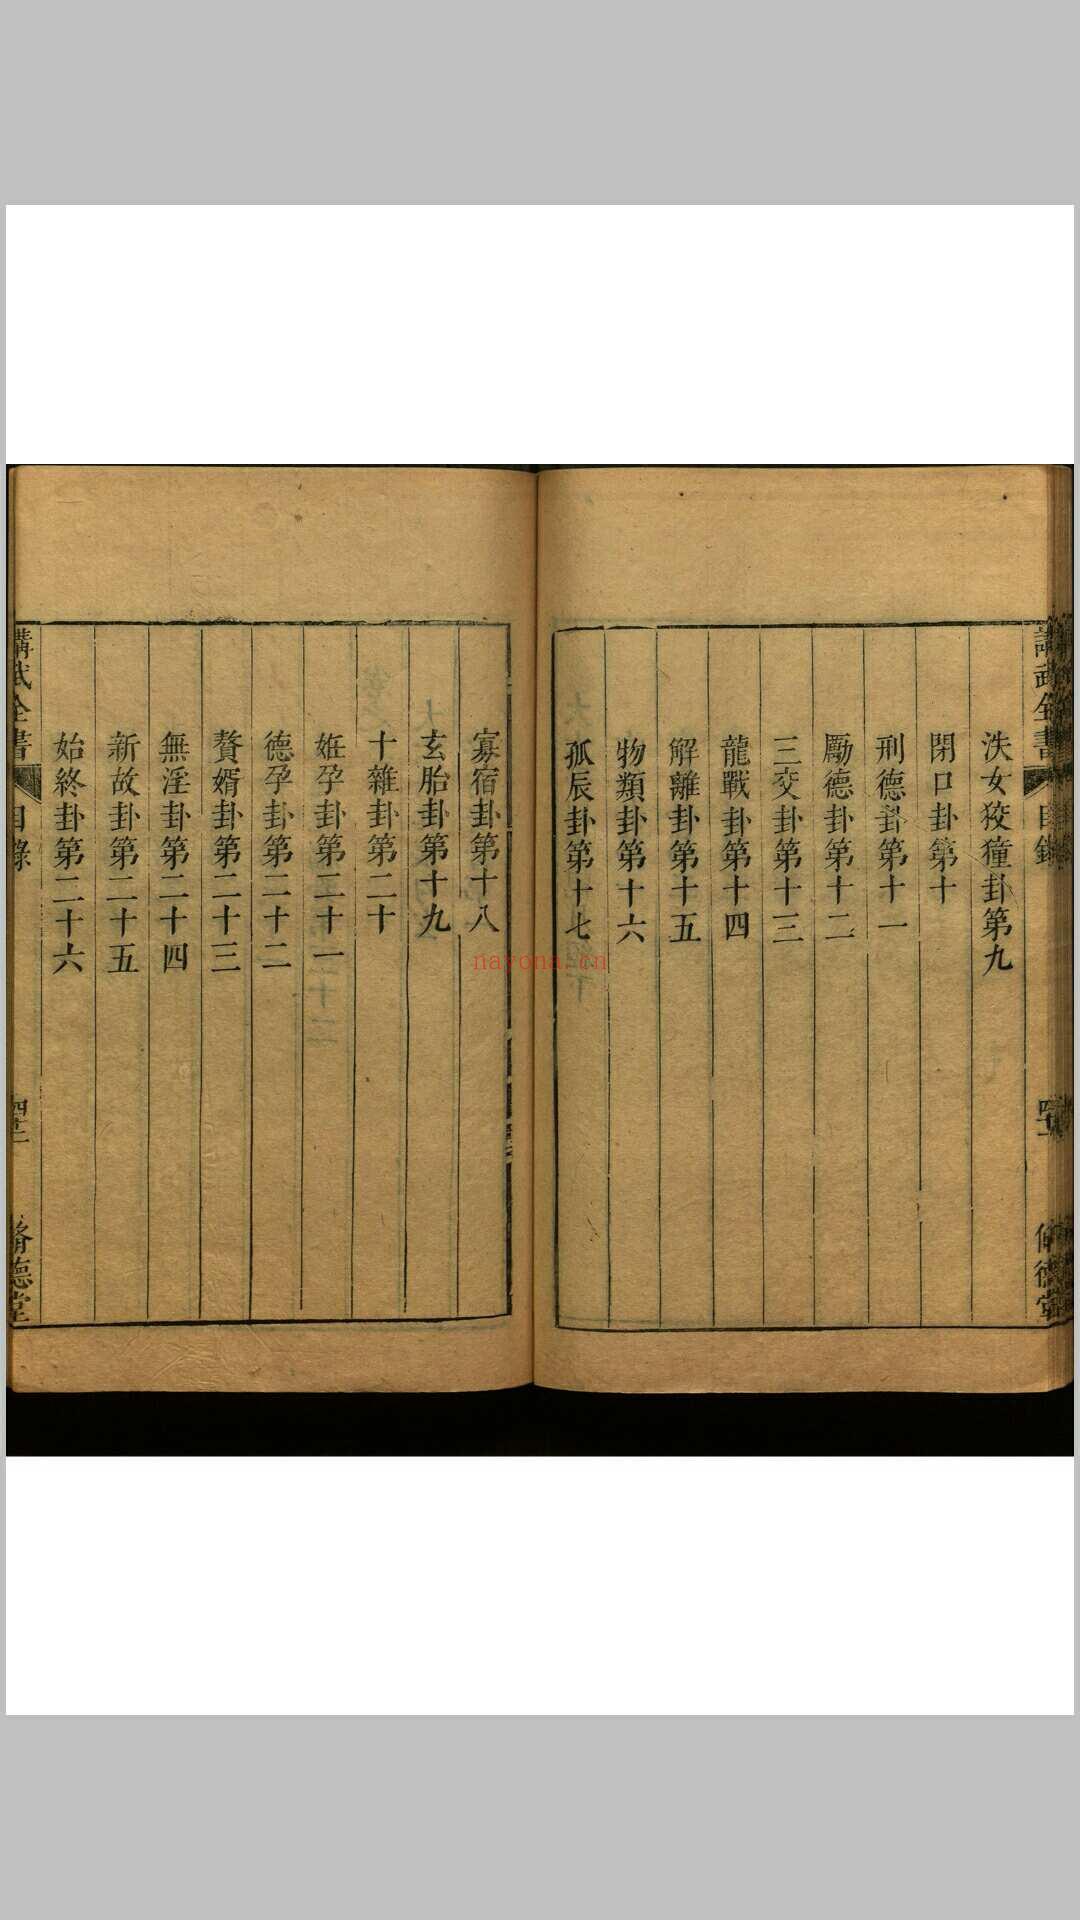 泆女狡獞卦第九
閉口卦第十
刑德卦第十一
勵德卦第十二
三交卦第十三
龍戰卦第十四
解離卦第十五
物類卦第十六
孤辰卦第十七
寡宿卦第十八
玄胎卦第十九
十雜卦第二十
姙孕卦第二十一
德孕卦第二十二
贅婿卦第二十三
無淫卦第二十四
新故卦第二十五
始終卦第二十六
講武全書 目錄 脩德堂
nayona.cn